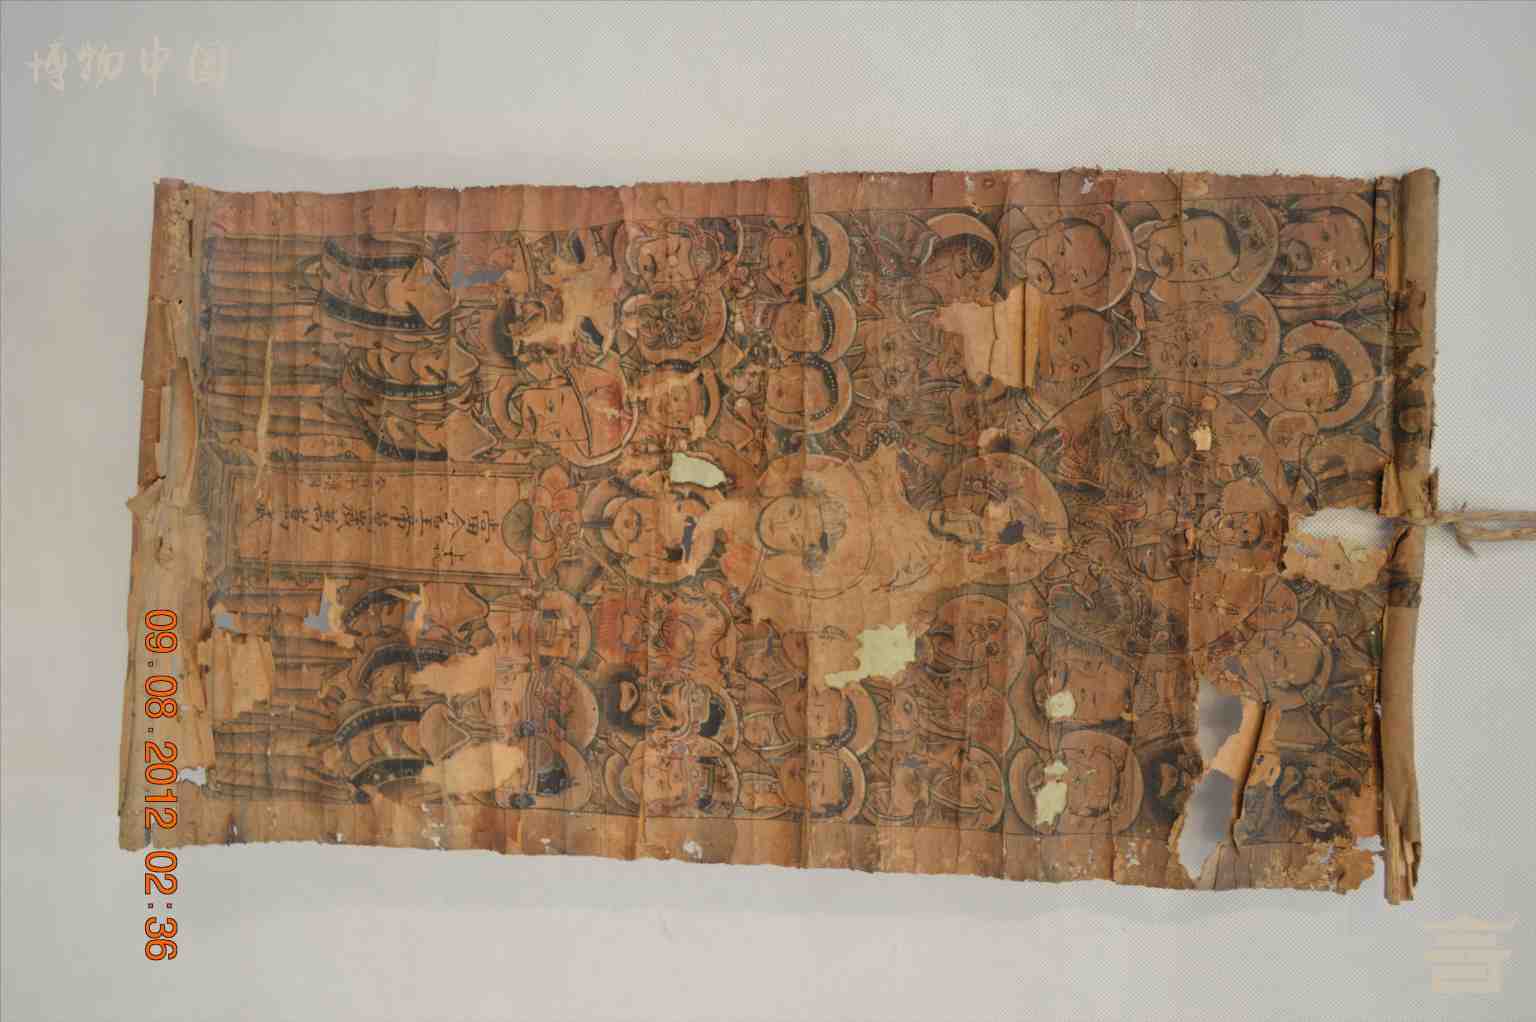 博物中国
當今皇帝萬歲萬萬歲
09.08.2012 02:36